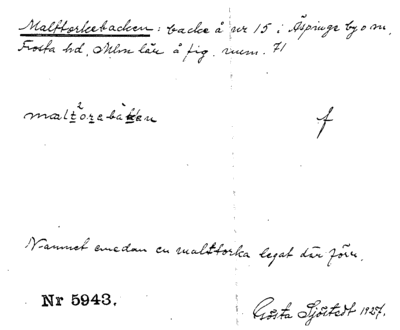 Malttorkebacken: backe å nr 15 i Äspinge by o sn.
Frosta hd, Mlm län å fig. num. 71
maltorebäken f
Namnet emedan en malttorka legat där förr.
Nr 5943. Gösta Sjöstedt 1927.